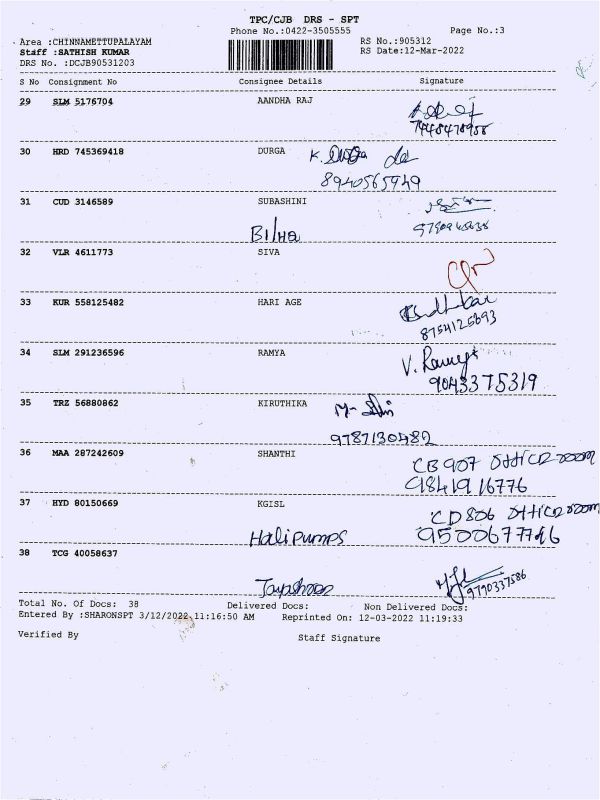 TPC/CJB DRS - SPT
Phone No.:0422-3505555 Page No.:3
Area :CHINNAMETTUPALAYAM RS No.:905312
Staff :SATHISH KUMAR RS Date:12-Mar-2022
DRS No. :DCJB90531203
S No Consignment No Consignee Details Signature
29 SLM 5176704 AANDHA RAJ
30 HRD 745369418 DURGA K. Durga
8940565949
31 CUD 3146589 SUBASHINI
32 VLR 4611773 SIVA
33 KUR 558125482 HARI AGE
8754125693
34 SLM 291236596 RAMYA V. Ramya
9043375319
35 TRZ 56880862 KIRUTHIKA
9787130482
36 MAA 287242609 SHANTHI CB 907 office room
9841916776
37 HYD 80150669 KGISL CD 806 office room
Halipumps 9500677746
38 TCG 40058637
9790337586
Total No. Of Docs: 38 Delivered Docs: Non Delivered Docs:
Entered By :SHARONSPT 3/12/2022 11:16:50 AM Reprinted On: 12-03-2022 11:19:33
Verified By Staff Signature